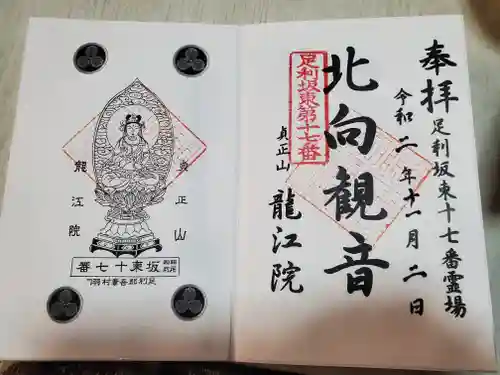 奉拝
足利坂東十七番霊場
令和二年十一月二日
北向観音
足利坂東第十七番
貞正山
龍江院
貞正山
龍江院
坂東十七番